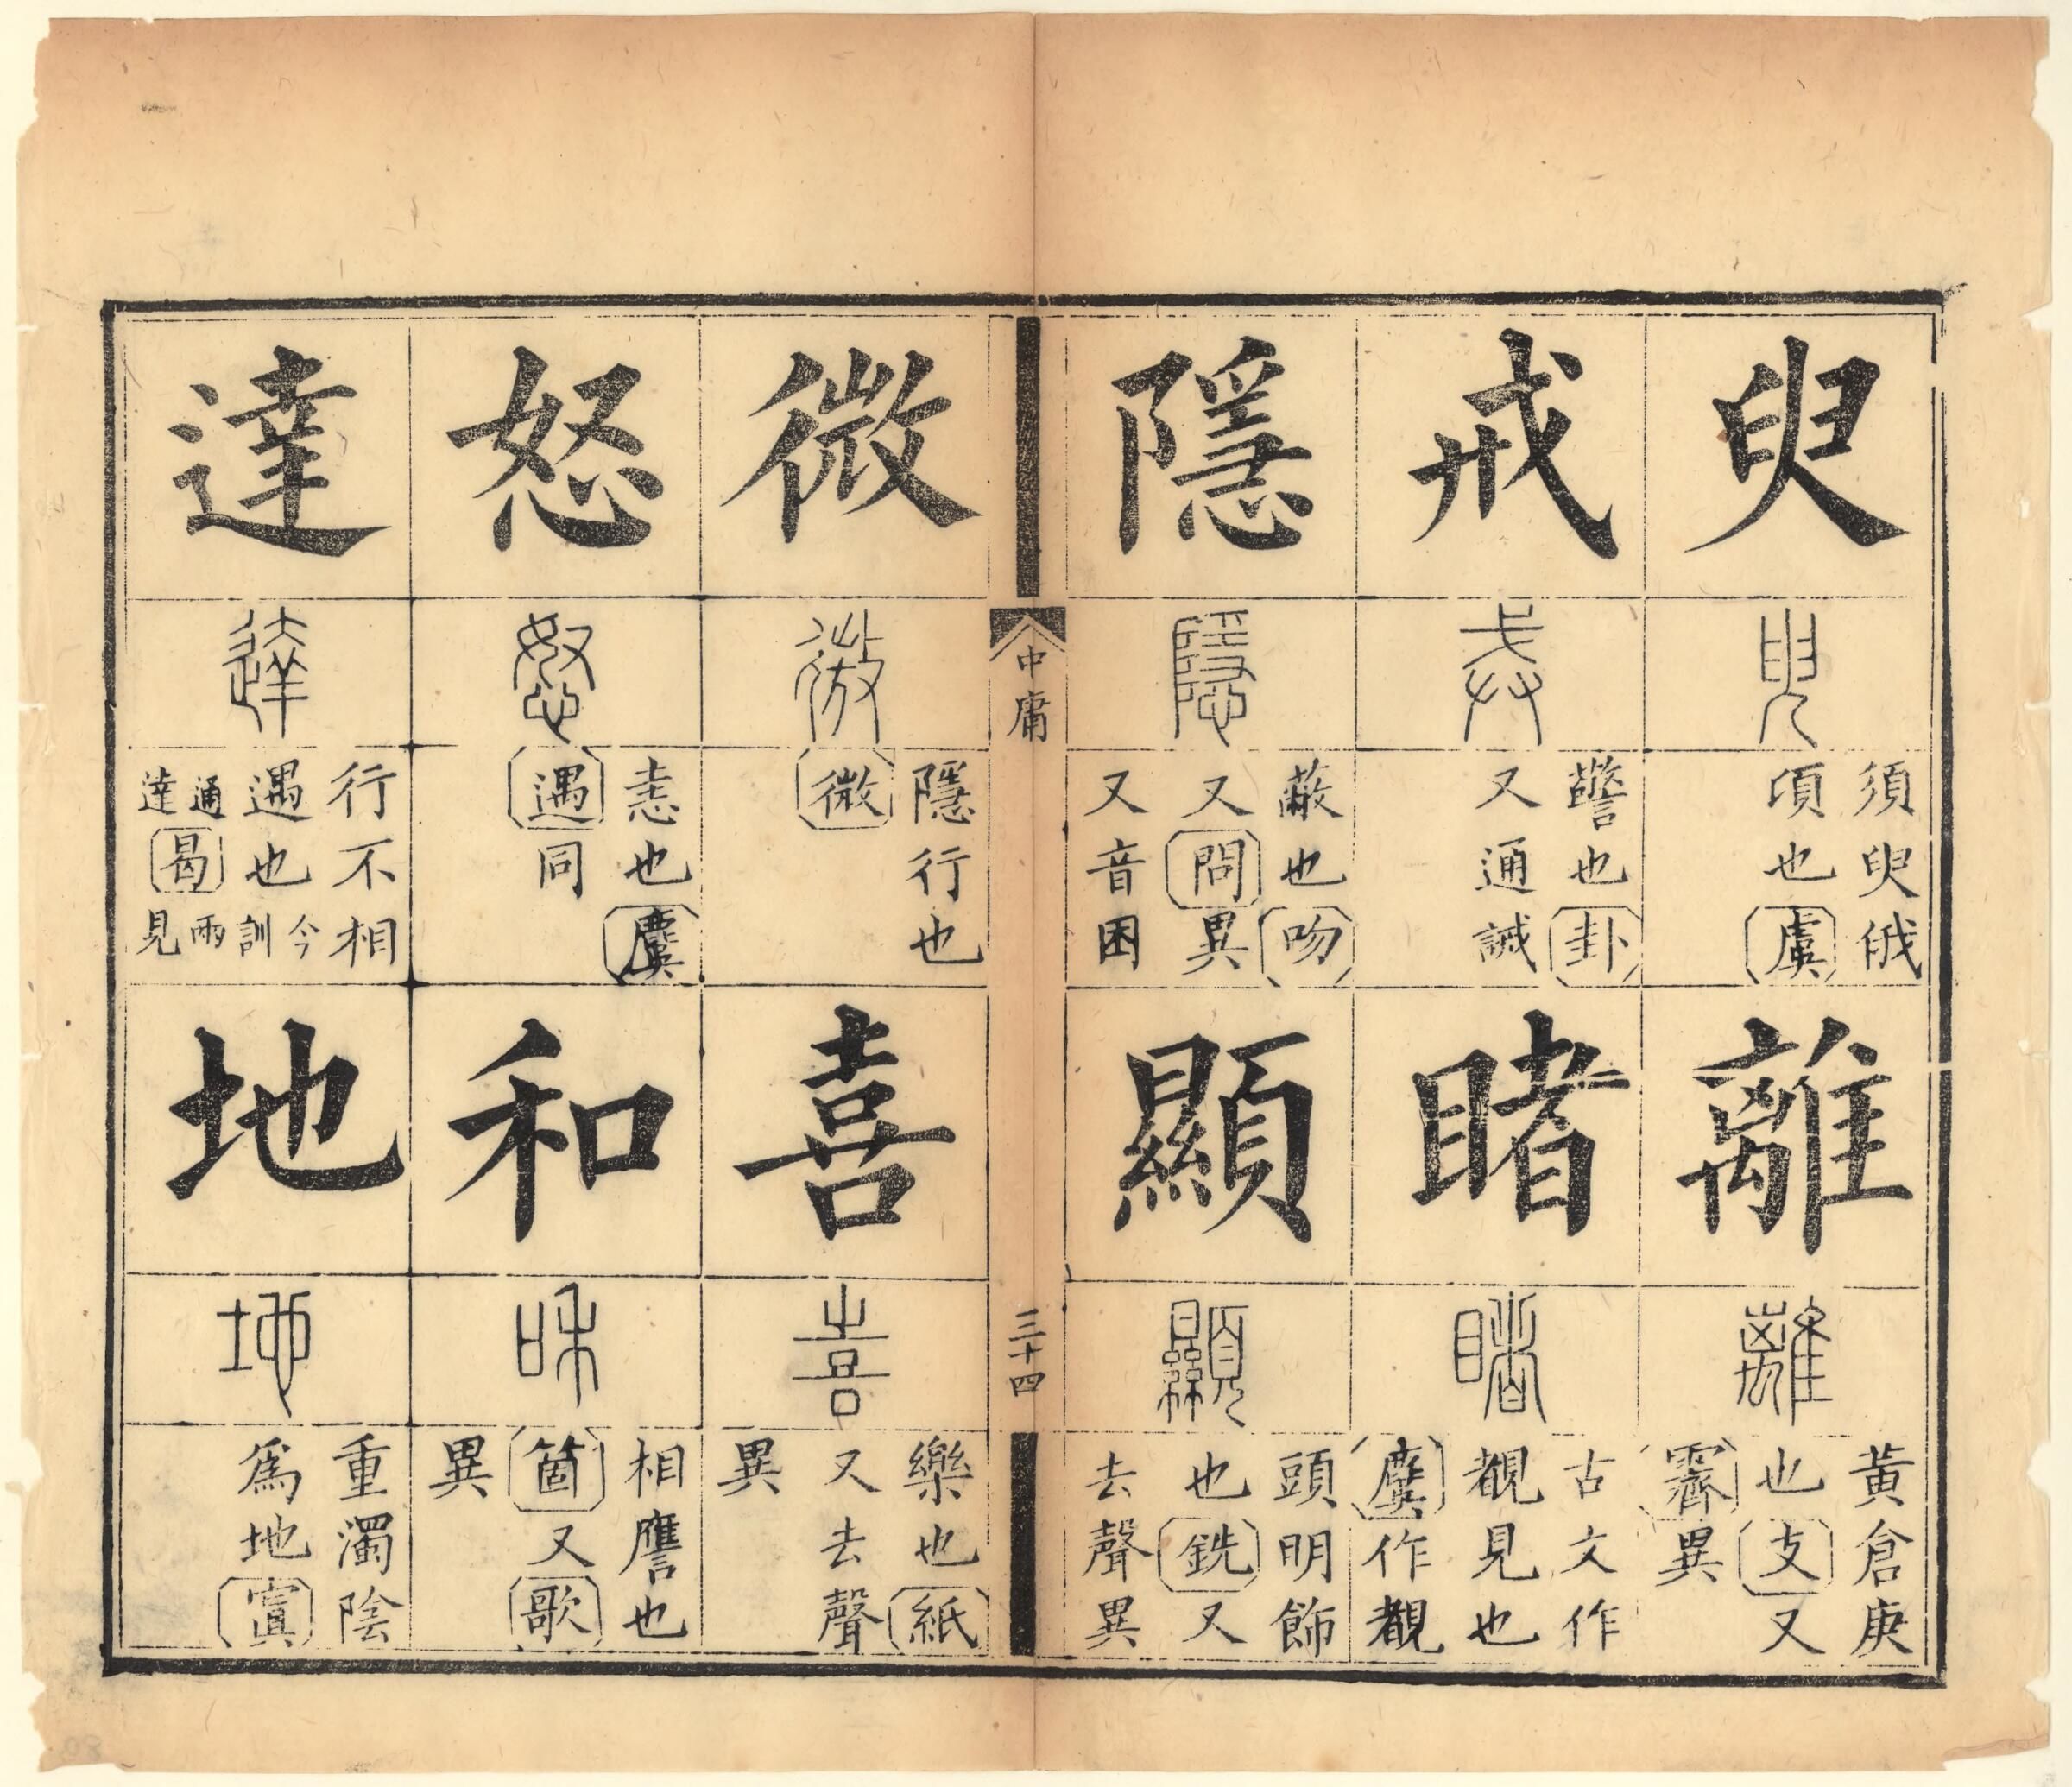 臾
臾
須臾俄
頃也虞
離
離
黃倉庚
也支又
霽異
戒
戒
警也卦
又通誡
睹
睹
古文作
覩見也
麌作覩
隱
隱
蔽也吻
又問異
又音困
顯
顯
頭明飾
也銑又
去聲異
中庸
三十四
微
微
隱行也
微
喜
喜
樂也紙
又去聲
異
怒
怒
恚也麌
遇同
和
和
相譍也
箇又歌
異
達
達
行不相
遇也今訓
通達曷兩見
地
地
重濁陰
爲地寘